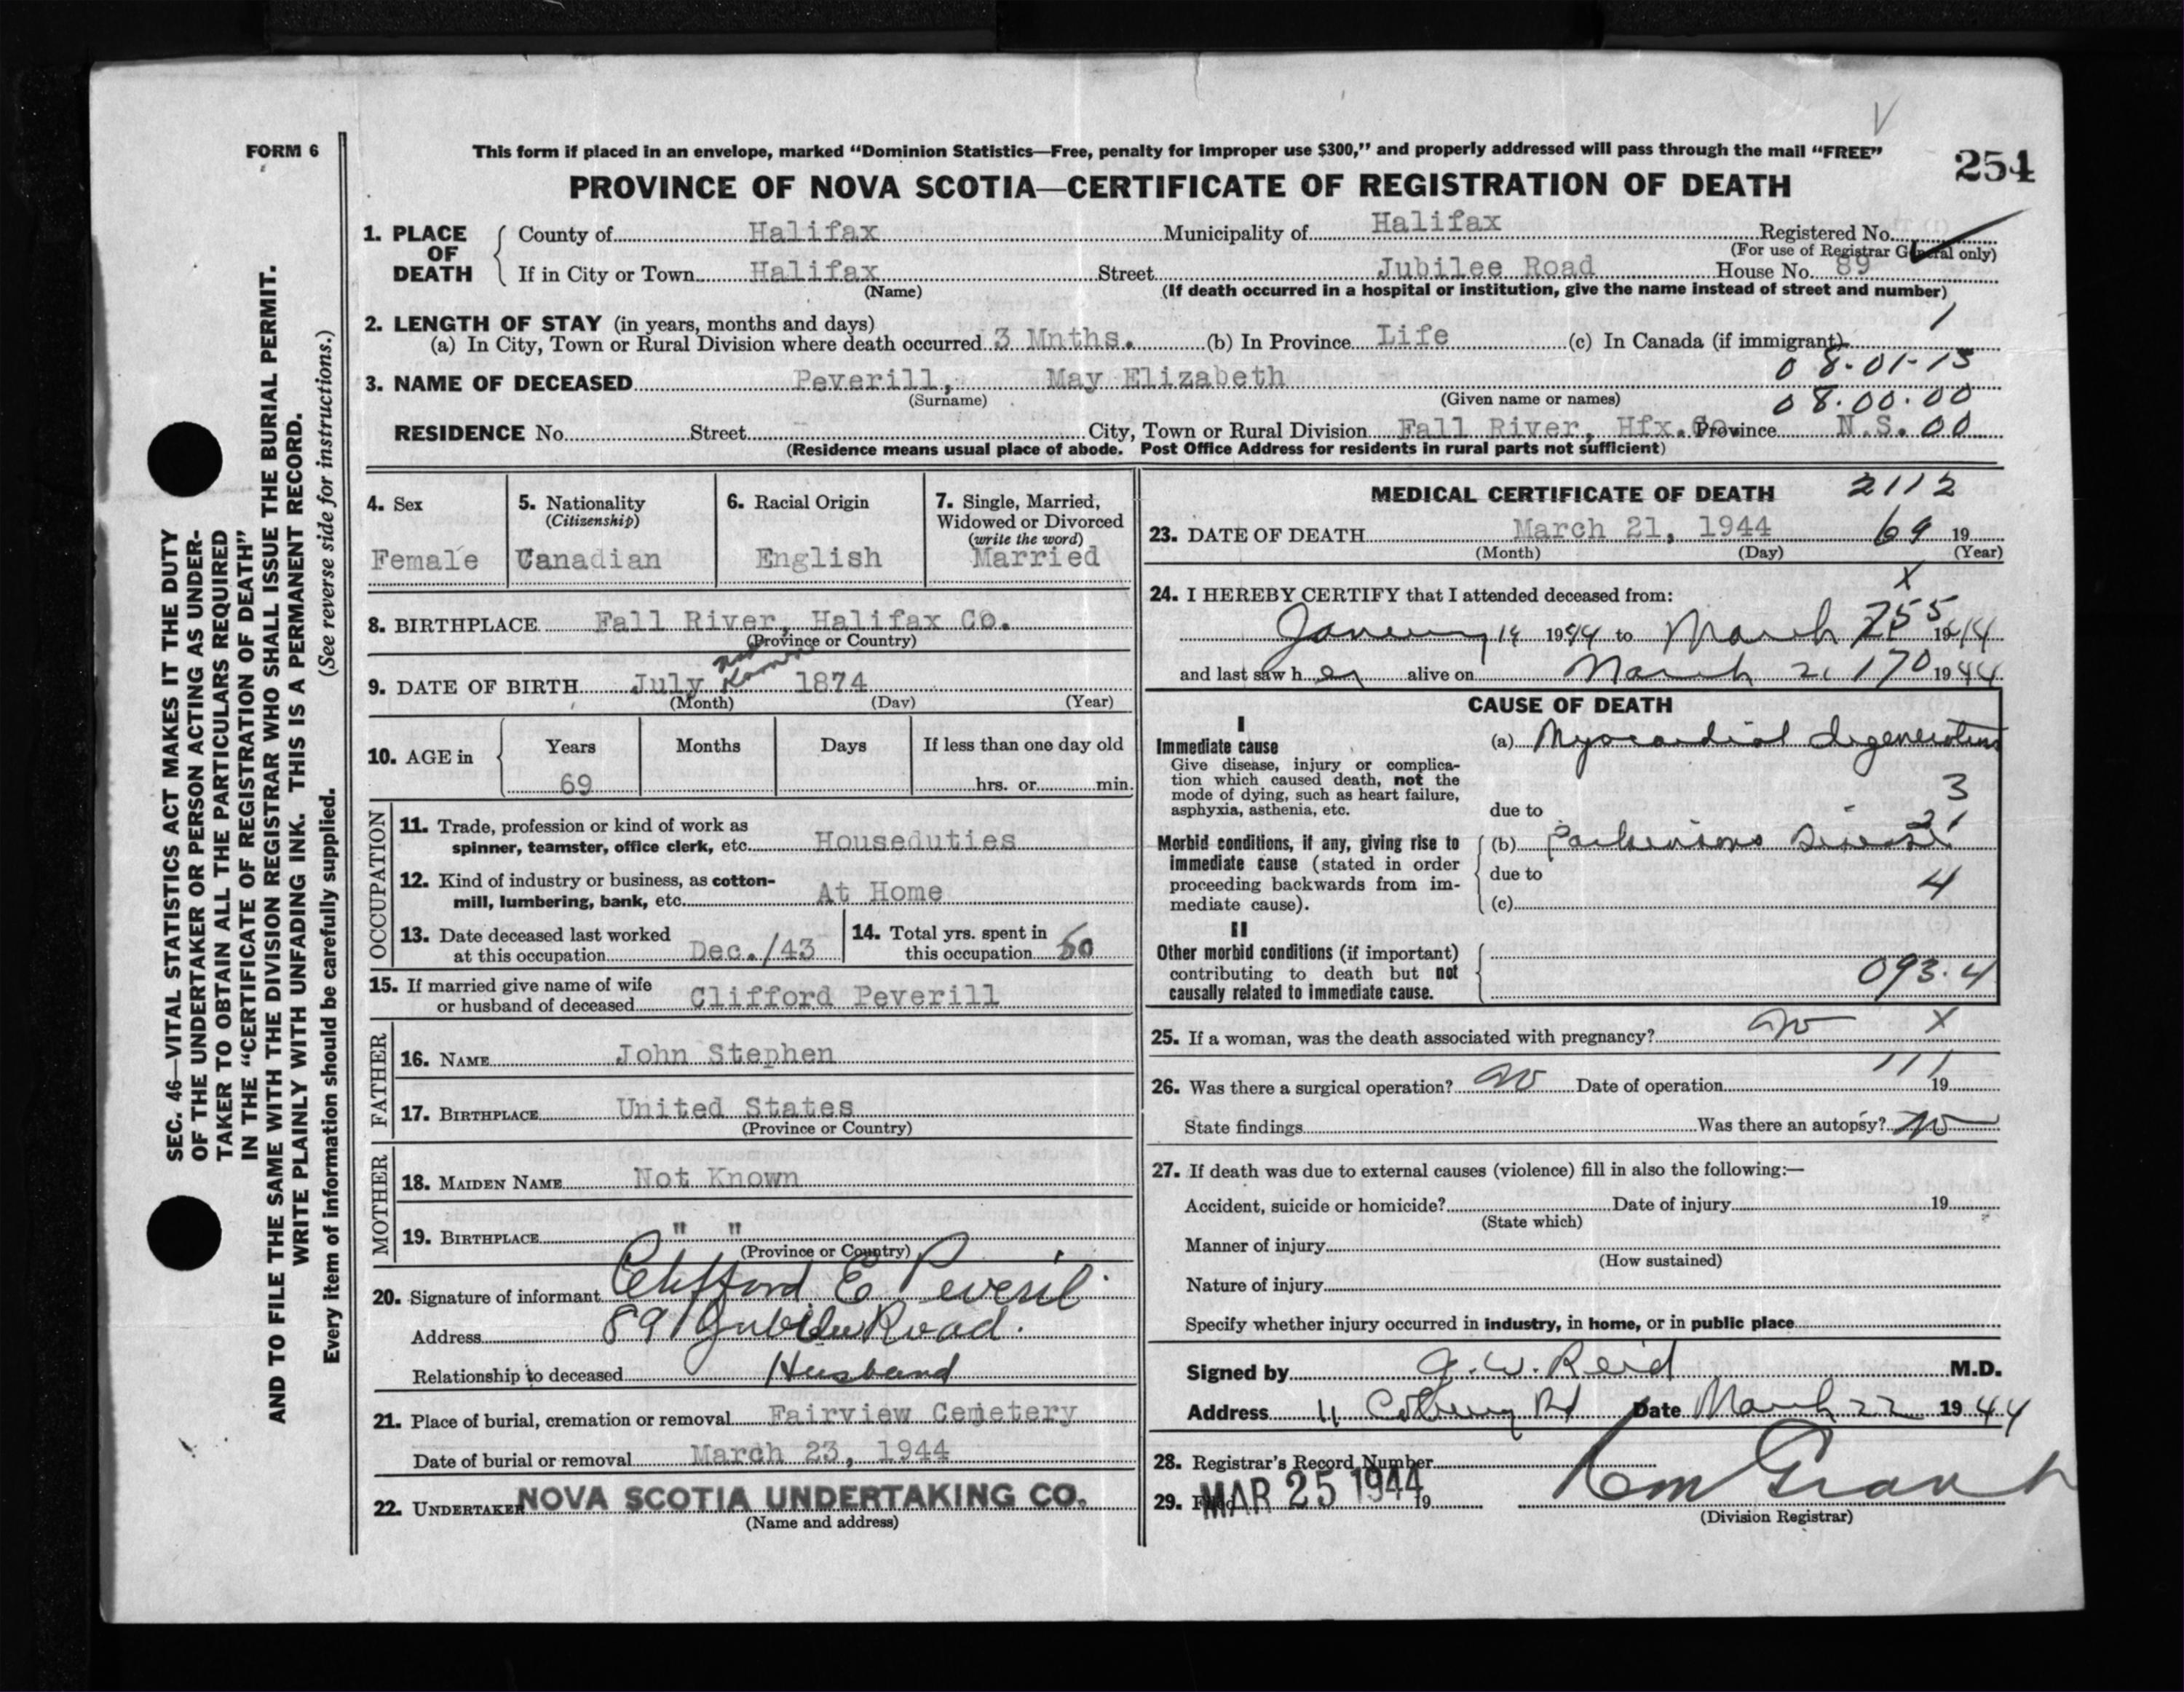 FORM 6
This form if placed in an envelope, marked "Dominion Statistics—Free, penalty for improper use $300," and properly addressed will pass through the mail "FREE"
254
PROVINCE OF NOVA SCOTIA—CERTIFICATE OF REGISTRATION OF DEATH
1. PLACE OF DEATH
County of Halifax Municipality of Halifax Registered No.
(For use of Registrar General only)
If in City or Town Halifax Street Jubilee Road House No. 89
(Name) (If death occurred in a hospital or institution, give the name instead of street and number)
2. LENGTH OF STAY (in years, months and days) 1
(a) In City, Town or Rural Division where death occurred 3 Mnths. (b) In Province Life (c) In Canada (if immigrant)
08-01-15
3. NAME OF DECEASED Peverill, May Elizabeth
(Surname) (Given name or names) 08.00.00
RESIDENCE No. Street City, Town or Rural Division Fall River, Hfx. Co. Province N.S. 00
(Residence means usual place of abode. Post Office Address for residents in rural parts not sufficient)
4. Sex
Female
5. Nationality
(Citizenship)
Canadian
6. Racial Origin
English
7. Single, Married,
Widowed or Divorced
(write the word)
Married
8. BIRTHPLACE Fall River, Halifax Co.
(Province or Country)
Not Known
9. DATE OF BIRTH July 1874
(Month) (Day) (Year)
10. AGE in Years Months Days If less than one day old
69 hrs. or min.
OCCUPATION
11. Trade, profession or kind of work as
spinner, teamster, office clerk, etc. Houseduties
12. Kind of industry or business, as cotton-
mill, lumbering, bank, etc. At Home
13. Date deceased last worked
at this occupation Dec./43
14. Total yrs. spent in
this occupation 50
15. If married give name of wife
or husband of deceased Clifford Peverill
FATHER
16. NAME John Stephen
17. BIRTHPLACE United States
(Province or Country)
MOTHER
18. MAIDEN NAME Not Known
19. BIRTHPLACE " "
(Province or Country)
20. Signature of informant Clifford E Peveril
Address 89 Jubilee Road.
Relationship to deceased Husband
21. Place of burial, cremation or removal Fairview Cemetery
Date of burial or removal March 23, 1944
22. UNDERTAKER NOVA SCOTIA UNDERTAKING CO.
(Name and address)
MEDICAL CERTIFICATE OF DEATH 2112
23. DATE OF DEATH March 21, 1944 69 19
(Month) (Day) (Year)
X
24. I HEREBY CERTIFY that I attended deceased from:
January 14 1944 to March 1944
and last saw her alive on March 21 170 1944
CAUSE OF DEATH
I
Immediate cause
Give disease, injury or complica-
tion which caused death, not the
mode of dying, such as heart failure,
asphyxia, asthenia, etc.
(a) Myocardial degeneration
3
due to
Morbid conditions, if any, giving rise to
immediate cause (stated in order
proceeding backwards from im-
mediate cause).
(b) Parkinsons Disease
due to
4
(c)
II
Other morbid conditions (if important)
contributing to death but not
causally related to immediate cause.
093.4
25. If a woman, was the death associated with pregnancy? no X
111
26. Was there a surgical operation? no Date of operation 19
State findings Was there an autopsy? no
27. If death was due to external causes (violence) fill in also the following:—
Accident, suicide or homicide? Date of injury 19
(State which)
Manner of injury
(How sustained)
Nature of injury
Specify whether injury occurred in industry, in home, or in public place
Signed by Reid M.D.
Address 11 Coburg Rd Date March 22 1944
28. Registrar's Record Number
29. Filed MAR 25 1944 19
Grant
(Division Registrar)
SEC. 46—VITAL STATISTICS ACT MAKES IT THE DUTY
OF THE UNDERTAKER OR PERSON ACTING AS UNDER-
TAKER TO OBTAIN ALL THE PARTICULARS REQUIRED
IN THE "CERTIFICATE OF REGISTRATION OF DEATH"
AND TO FILE THE SAME WITH THE DIVISION REGISTRAR WHO SHALL ISSUE THE BURIAL PERMIT.
WRITE PLAINLY WITH UNFADING INK. THIS IS A PERMANENT RECORD.
Every item of information should be carefully supplied. (See reverse side for instructions.)